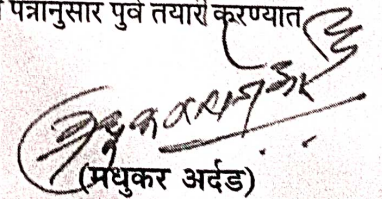 पत्रानुसार पुर्व तयारी करण्यात
(मधुकर अर्दड)